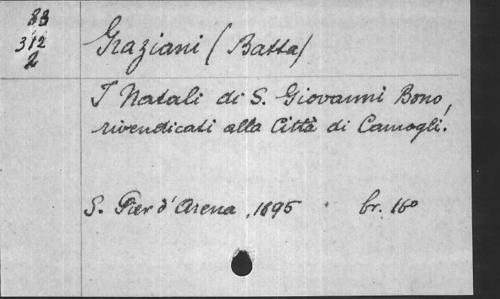 33
312
2
Graziani (Batta)
I Natali di S. Giovanni Bono,
rivendicati alla Città di Camogli.
S. Pier d'Arena, 1895 br. 16°